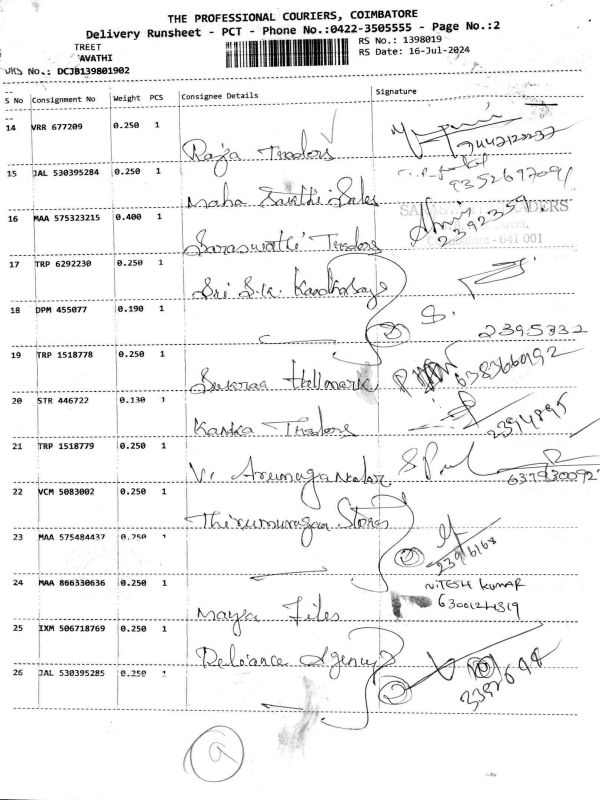 THE PROFESSIONAL COURIERS, COIMBATORE
Delivery Runsheet - PCT - Phone No.:0422-3505555 - Page No.:2
TREET
AVATHI
RS No.: 1398019
RS Date: 16-Jul-2024
No.: DCJB139801902
S No Consignment No Weight PCS Consignee Details Signature
14 VRR 677209 0.250 1
Raja Traders
15 JAL 530395284 0.250 1
Maha Sakthi Sales
16 MAA 575323215 0.400 1
2392359
- 641 001
Saraswathi Traders
17 TRP 6292230 0.250 1
Sri S.K.
18 DPM 455077 0.190 1
② S. 2395332
19 TRP 1518778 0.250 1
Hallmark
638366092
20 STR 446722 0.130 1
Kanka Traders
2394895
21 TRP 1518779 0.250 1
V.
22 VCM 5083002 0.250 1
Thirumurugan Stores
23 MAA 575484437 0.250 1
②
24 MAA 866330636 0.250 1
NITESH KUMAR
Maya Files
25 IXM 506718769 0.250 1
Reliance Agency
26 JAL 530395285 0.250 1
②
9